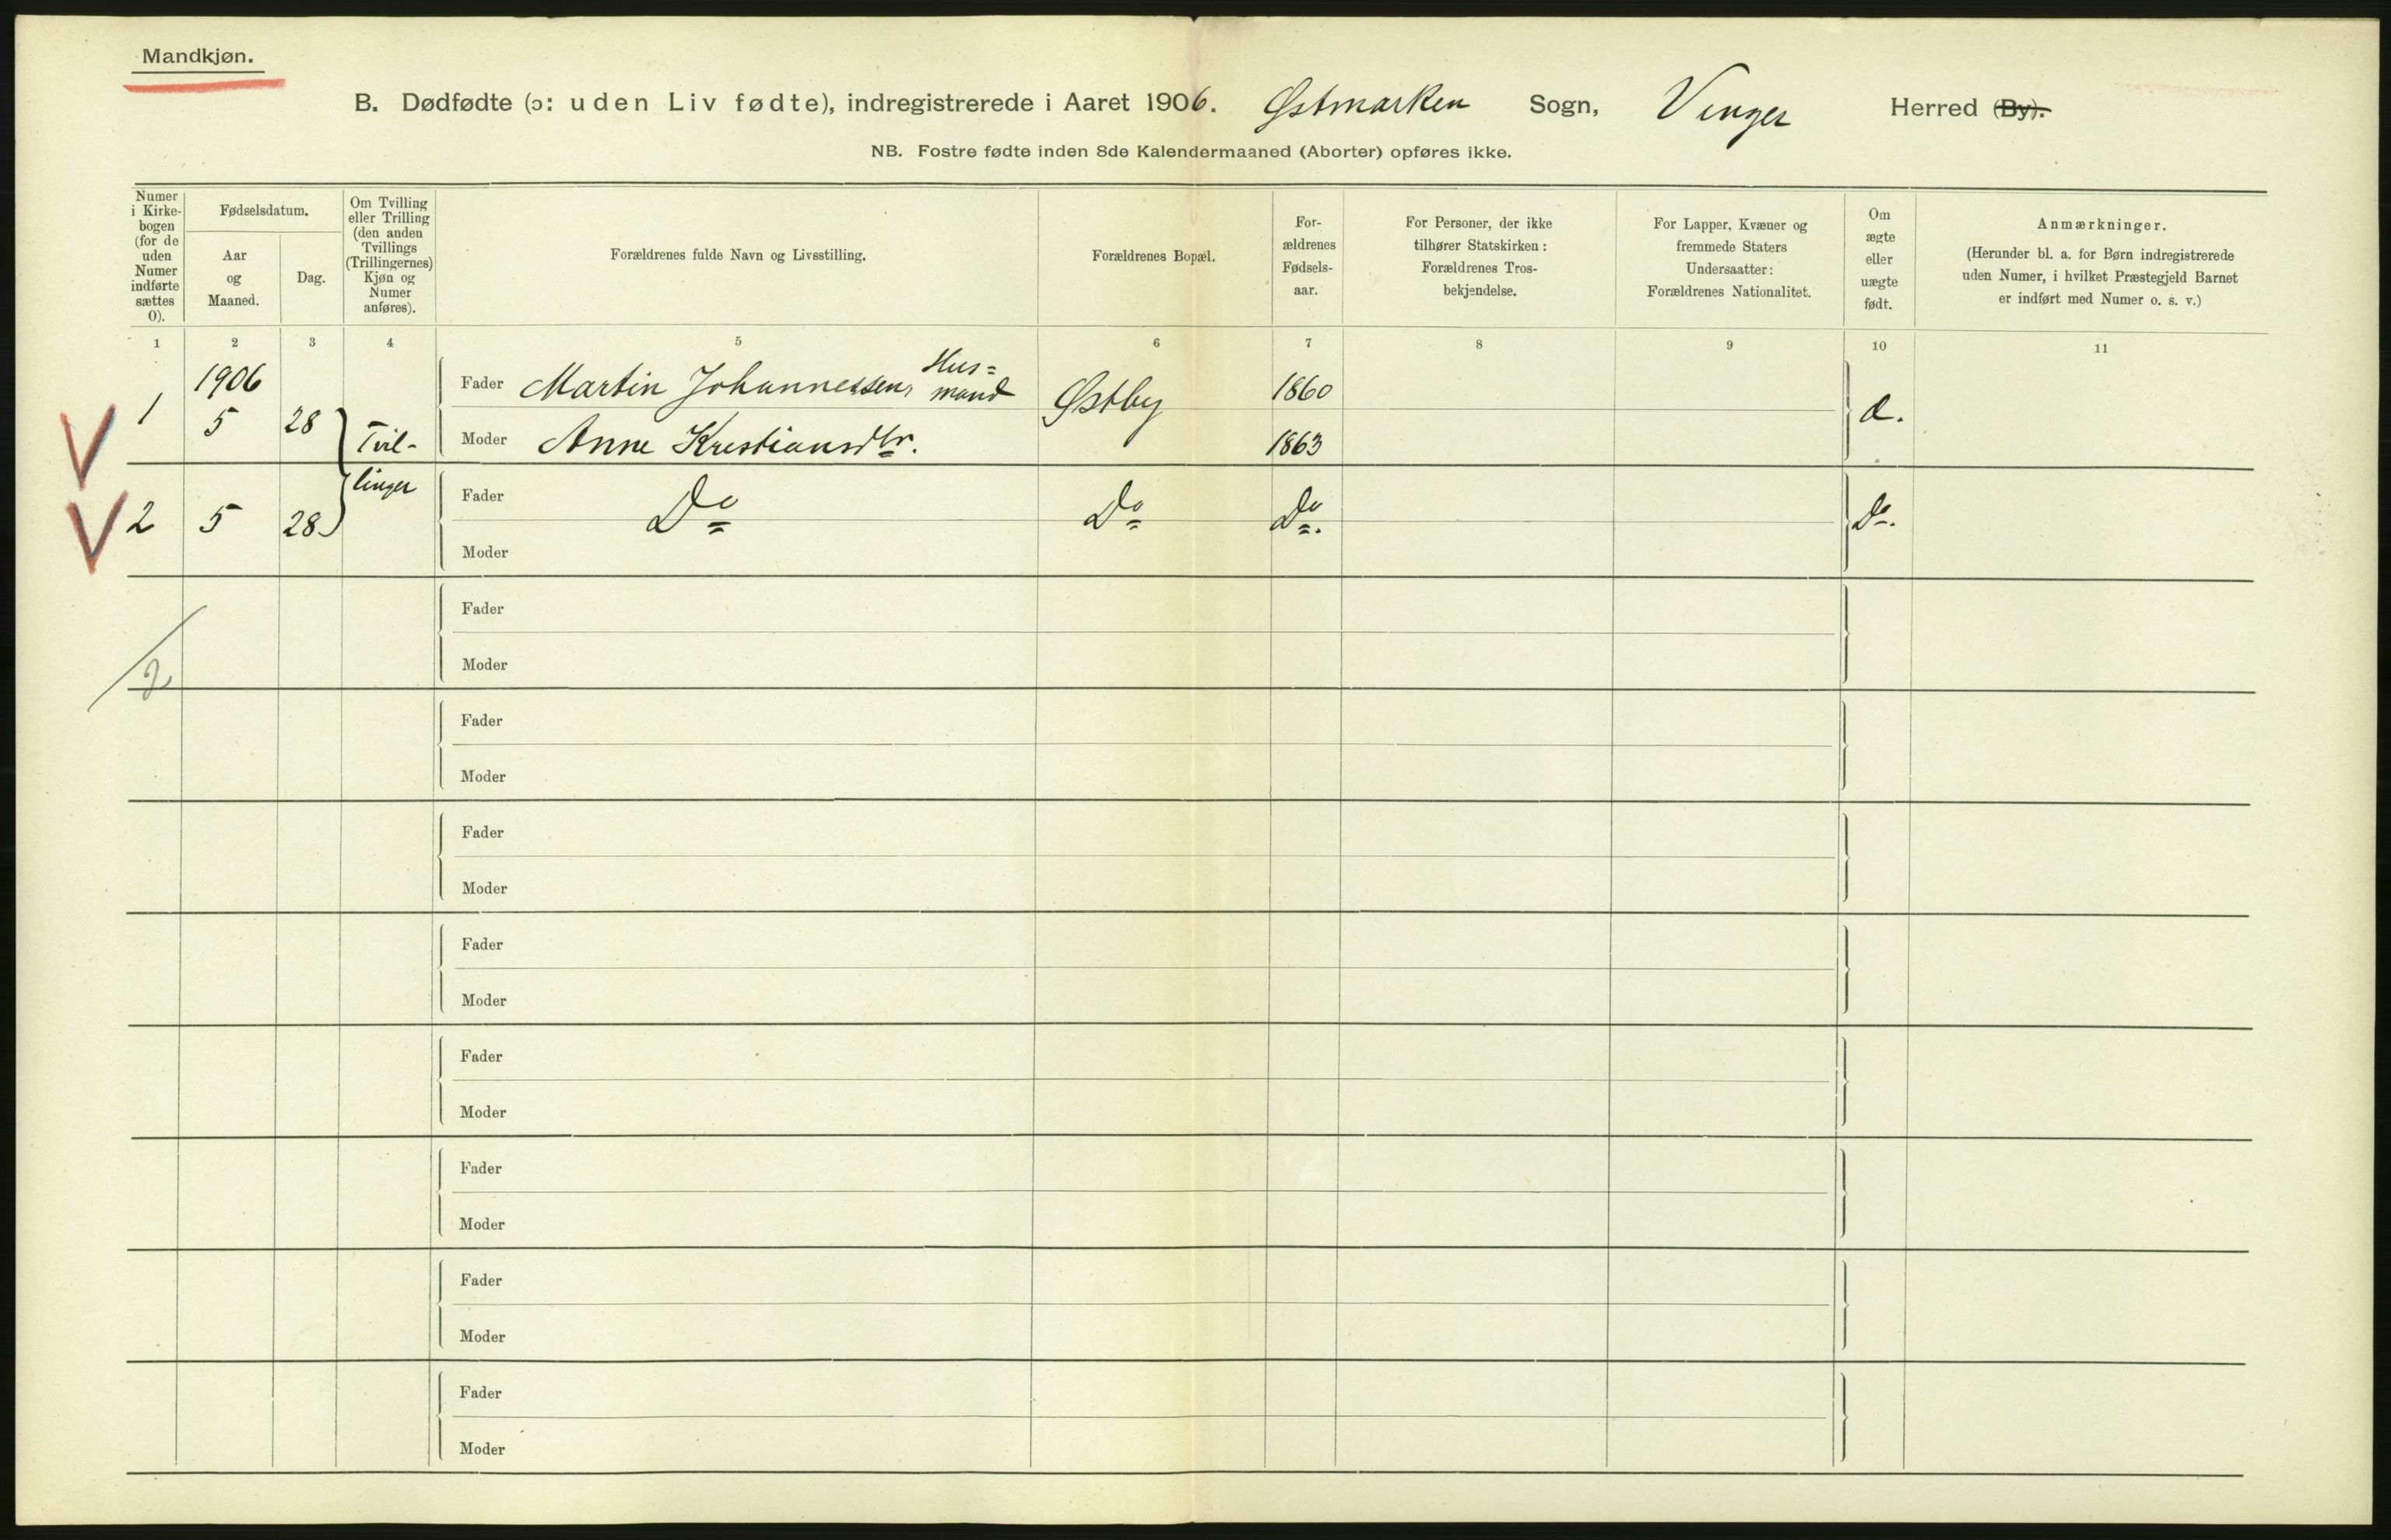 Mandkjøn.
B. Dødfødte (ɔ: uden Liv fødte), indregistrerede i Aaret 1906. Østmarken Sogn, Vinger Herred (By).
NB. Fostre fødte inden 8de Kalendermaaned (Aborter) opføres ikke.
Numer
i Kirke-
bogen
(for de
uden
Numer
indførte
sættes
0).
Fødselsdatum.
Aar
og
Maaned.
Dag.
Om Tvilling
eller Trilling
(den anden
Tvillings
(Trillingernes)
Kjøn og
Numer
anføres).
Forældrenes fulde Navn og Livsstilling.
Forældrenes Bopæl.
For-
ældrenes
Fødsels-
aar.
For Personer, der ikke
tilhører Statskirken:
Forældrenes Tros-
bekjendelse.
For Lapper, Kvæner og
fremmede Staters
Undersaatter:
Forældrenes Nationalitet.
Om
ægte
eller
uægte
født.
Anmærkninger.
(Herunder bl. a. for Børn indregistrerede
uden Numer, i hvilket Præstegjeld Barnet
er indført med Numer o. s. v.)
1 2 3 4 5 6 7 8 9 10 11
1906
Hus=
Fader Martin Johannessen, mand Østby 1860
1 5 28 Tvil- æ.
Moder Anne Kristiansdtr. 1863
linger
Fader
2 5 28 Do Do Do. Do.
Moder
Fader
Moder
2
Fader
Moder
Fader
Moder
Fader
Moder
Fader
Moder
Fader
Moder
Fader
Moder
Fader
Moder